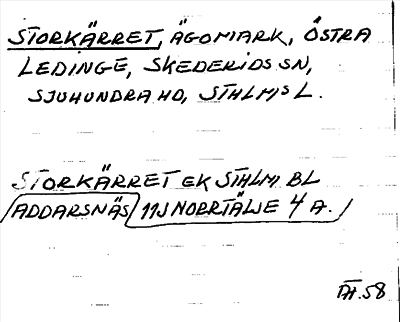 STORKÄRRET, ÄGOMARK, ÖSTRA
LEDINGE, SKEDERIDS SN,
SJUHUNDRA HD, STHLMS L.
STORKÄRRET EK STHLM BL
ADDARSNÄS 11J NORRTÄLJE 4 A.
58